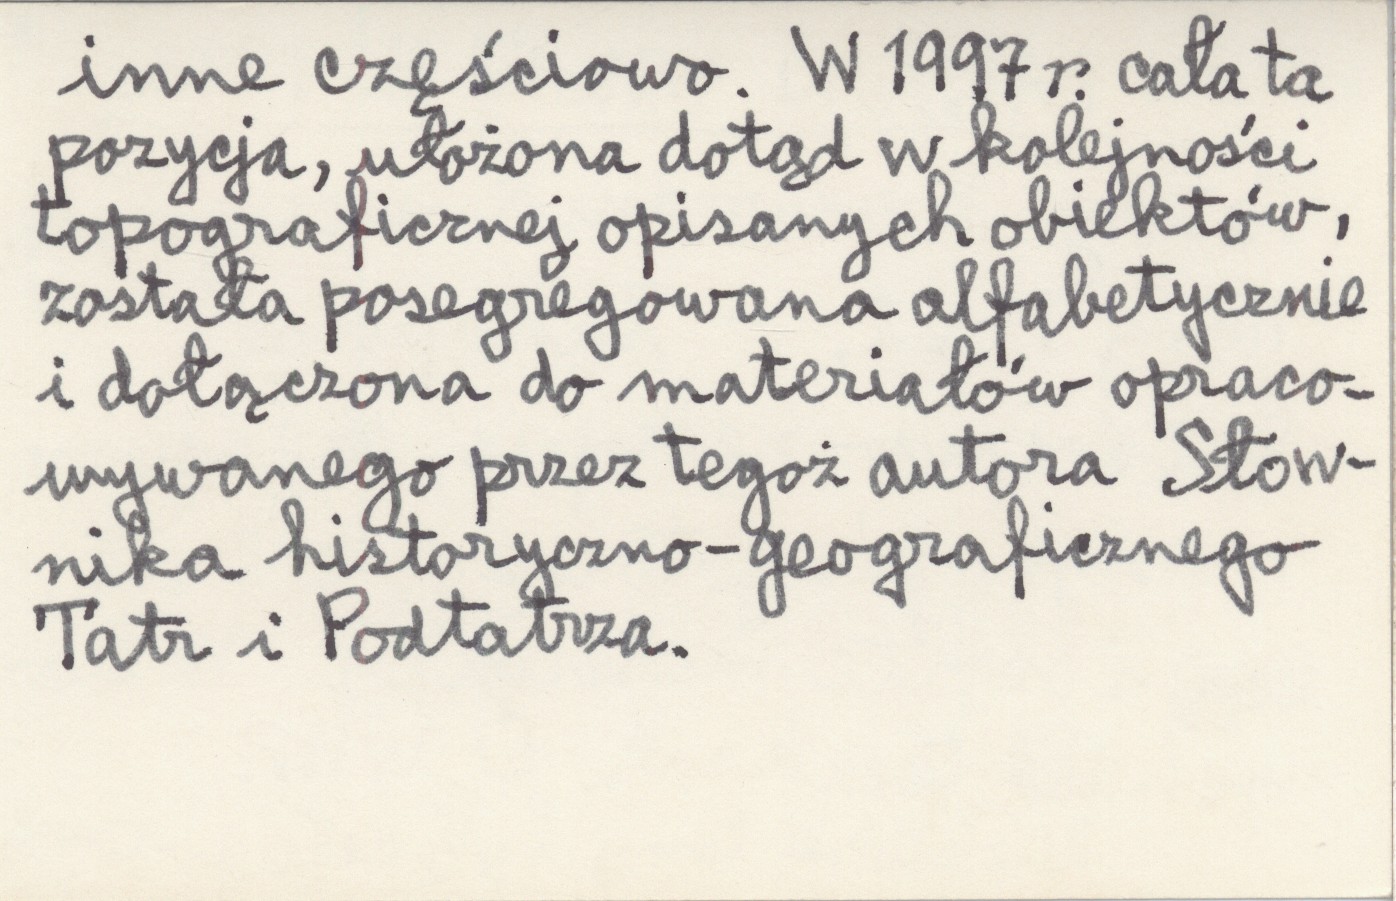 inne częściowo. W 1997 r. cała ta
pozycja, ułożona dotąd w kolejności
topograficznej opisanych obiektów,
została posegregowana alfabetycznie
i dołączona do materiałów opraco-
wywanego przez tegoż autora Słow-
nika historyczno-geograficznego
Tatr i Podtatrza.